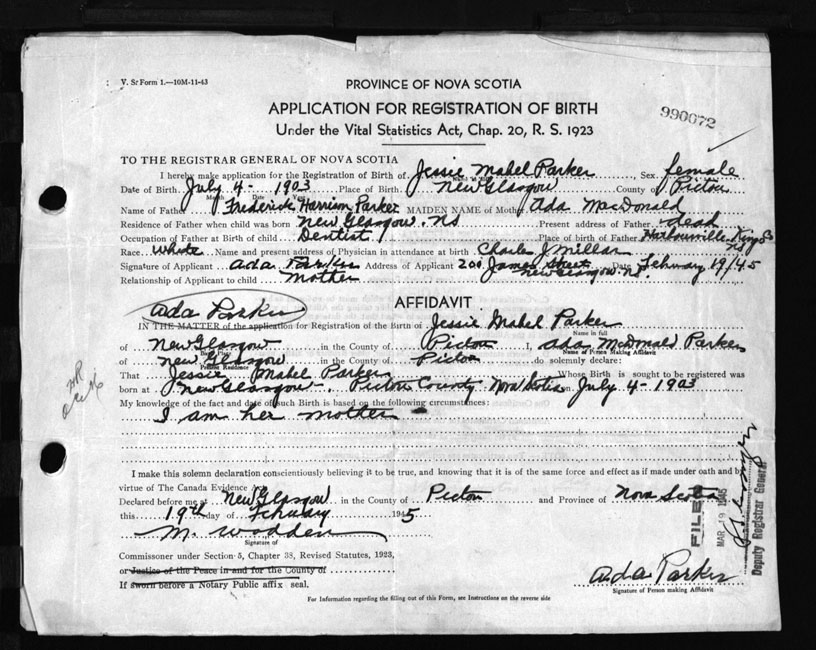 V. St Form 1.—10M-11-43
PROVINCE OF NOVA SCOTIA
APPLICATION FOR REGISTRATION OF BIRTH
990072
Under the Vital Statistics Act, Chap. 20, R. S. 1923
TO THE REGISTRAR GENERAL OF NOVA SCOTIA
I hereby make application for the Registration of Birth of Jessie Mabel Parker Sex female
Date of Birth July 4 - 1903 Place of Birth New Glasgow County of Pictou
Month Date Year
Name of Father Frederick Harrison Parker MAIDEN NAME of Mother Ada MacDonald
Residence of Father when child was born New Glasgow. NS Present address of Father dead
Occupation of Father at Birth of child Dentist Place of birth of Father Harbourville Kings Co
Race White Name and present address of Physician in attendance at birth Charles J Millar NS
Signature of Applicant Ada Parker Address of Applicant 200 James Street Date February 19/45
Relationship of Applicant to child Mother New Glasgow NS.
Ada Parker
AFFIDAVIT
IN THE MATTER of the application for Registration of the Birth of Jessie Mabel Parker
Name in full
of New Glasgow in the County of Pictou I, Ada McDonald Parker
Birth Place Name of Person Making Affidavit
of New Glasgow in the County of Pictou do solemnly declare:
Present Residence
That Jessie Mabel Parker Whose Birth is sought to be registered was
born at New Glasgow. Pictou County Nova Scotia July 4 - 1903
My knowledge of the fact and date of such Birth is based on the following circumstances:
I am her mother
I make this solemn declaration conscientiously believing it to be true, and knowing that it is of the same force and effect as if made under oath and by
virtue of The Canada Evidence Act.
Declared before me at New Glasgow in the County of Pictou and Province of Nova Scotia
this 19th day of February 1945
M. Wodden
Signature of
Commissioner under Section 5, Chapter 38, Revised Statutes, 1923,
or Justice of the Peace in and for the County of
If sworn before a Notary Public affix seal.
Ada Parker
Signature of Person making Affidavit
For Information regarding the filling out of this Form, see Instructions on the reverse side
FILED
MAR 19 1945
Deputy Registrar General